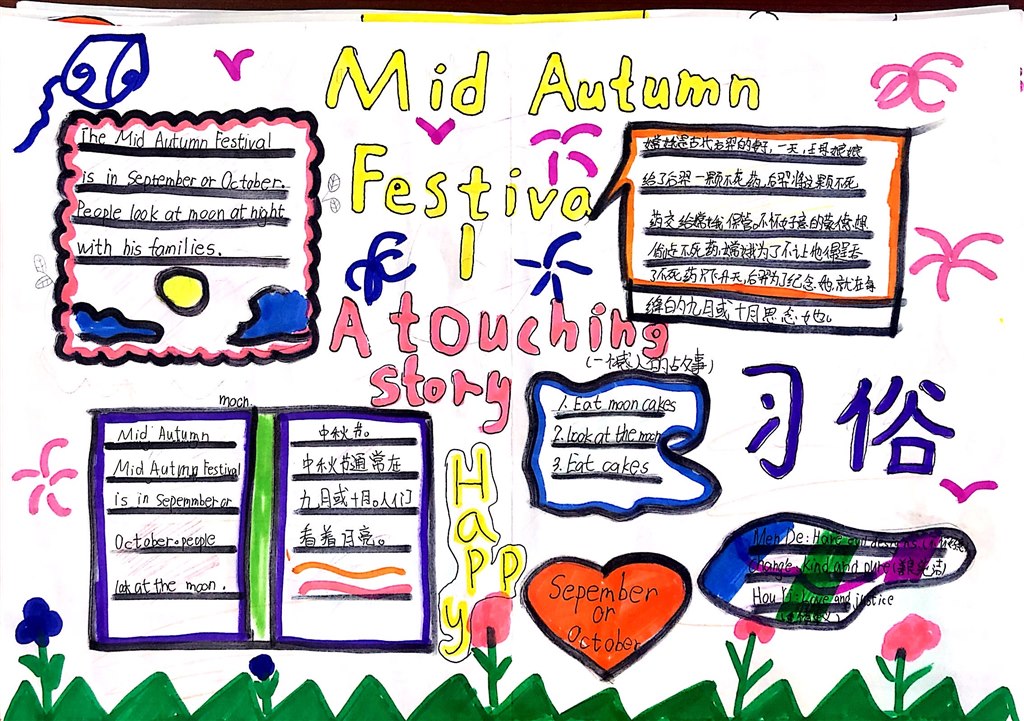 Mid Autumn
Festival
A touching
story
(一个感人的故事)
The Mid Autumn Festival
is in September or October.
People look at moon at night
with his families.
嫦娥是古代后羿的妻子,一天,王母娘娘
给了后羿一颗不死药,后羿将这颗不死
药交给嫦娥保管。不怀好意的蒙想
偷不死药,嫦娥为了不让他得
了不死药只下升天,后羿为了纪念她,就在每
的九月或十月思念她。
moon.
Mid Autumn
Mid Autmn Festival
is in Sepemmber or
October.people
look at the moon.
中秋节。
中秋节通常在
九月或十月。人们
看着月亮。
Happy
1. Eat moon cakes
2. look at the moon
3. Eat cakes
习俗
Sepember
or
October
Men De: Have
Change: kind and pure
Hou Yi: and justice